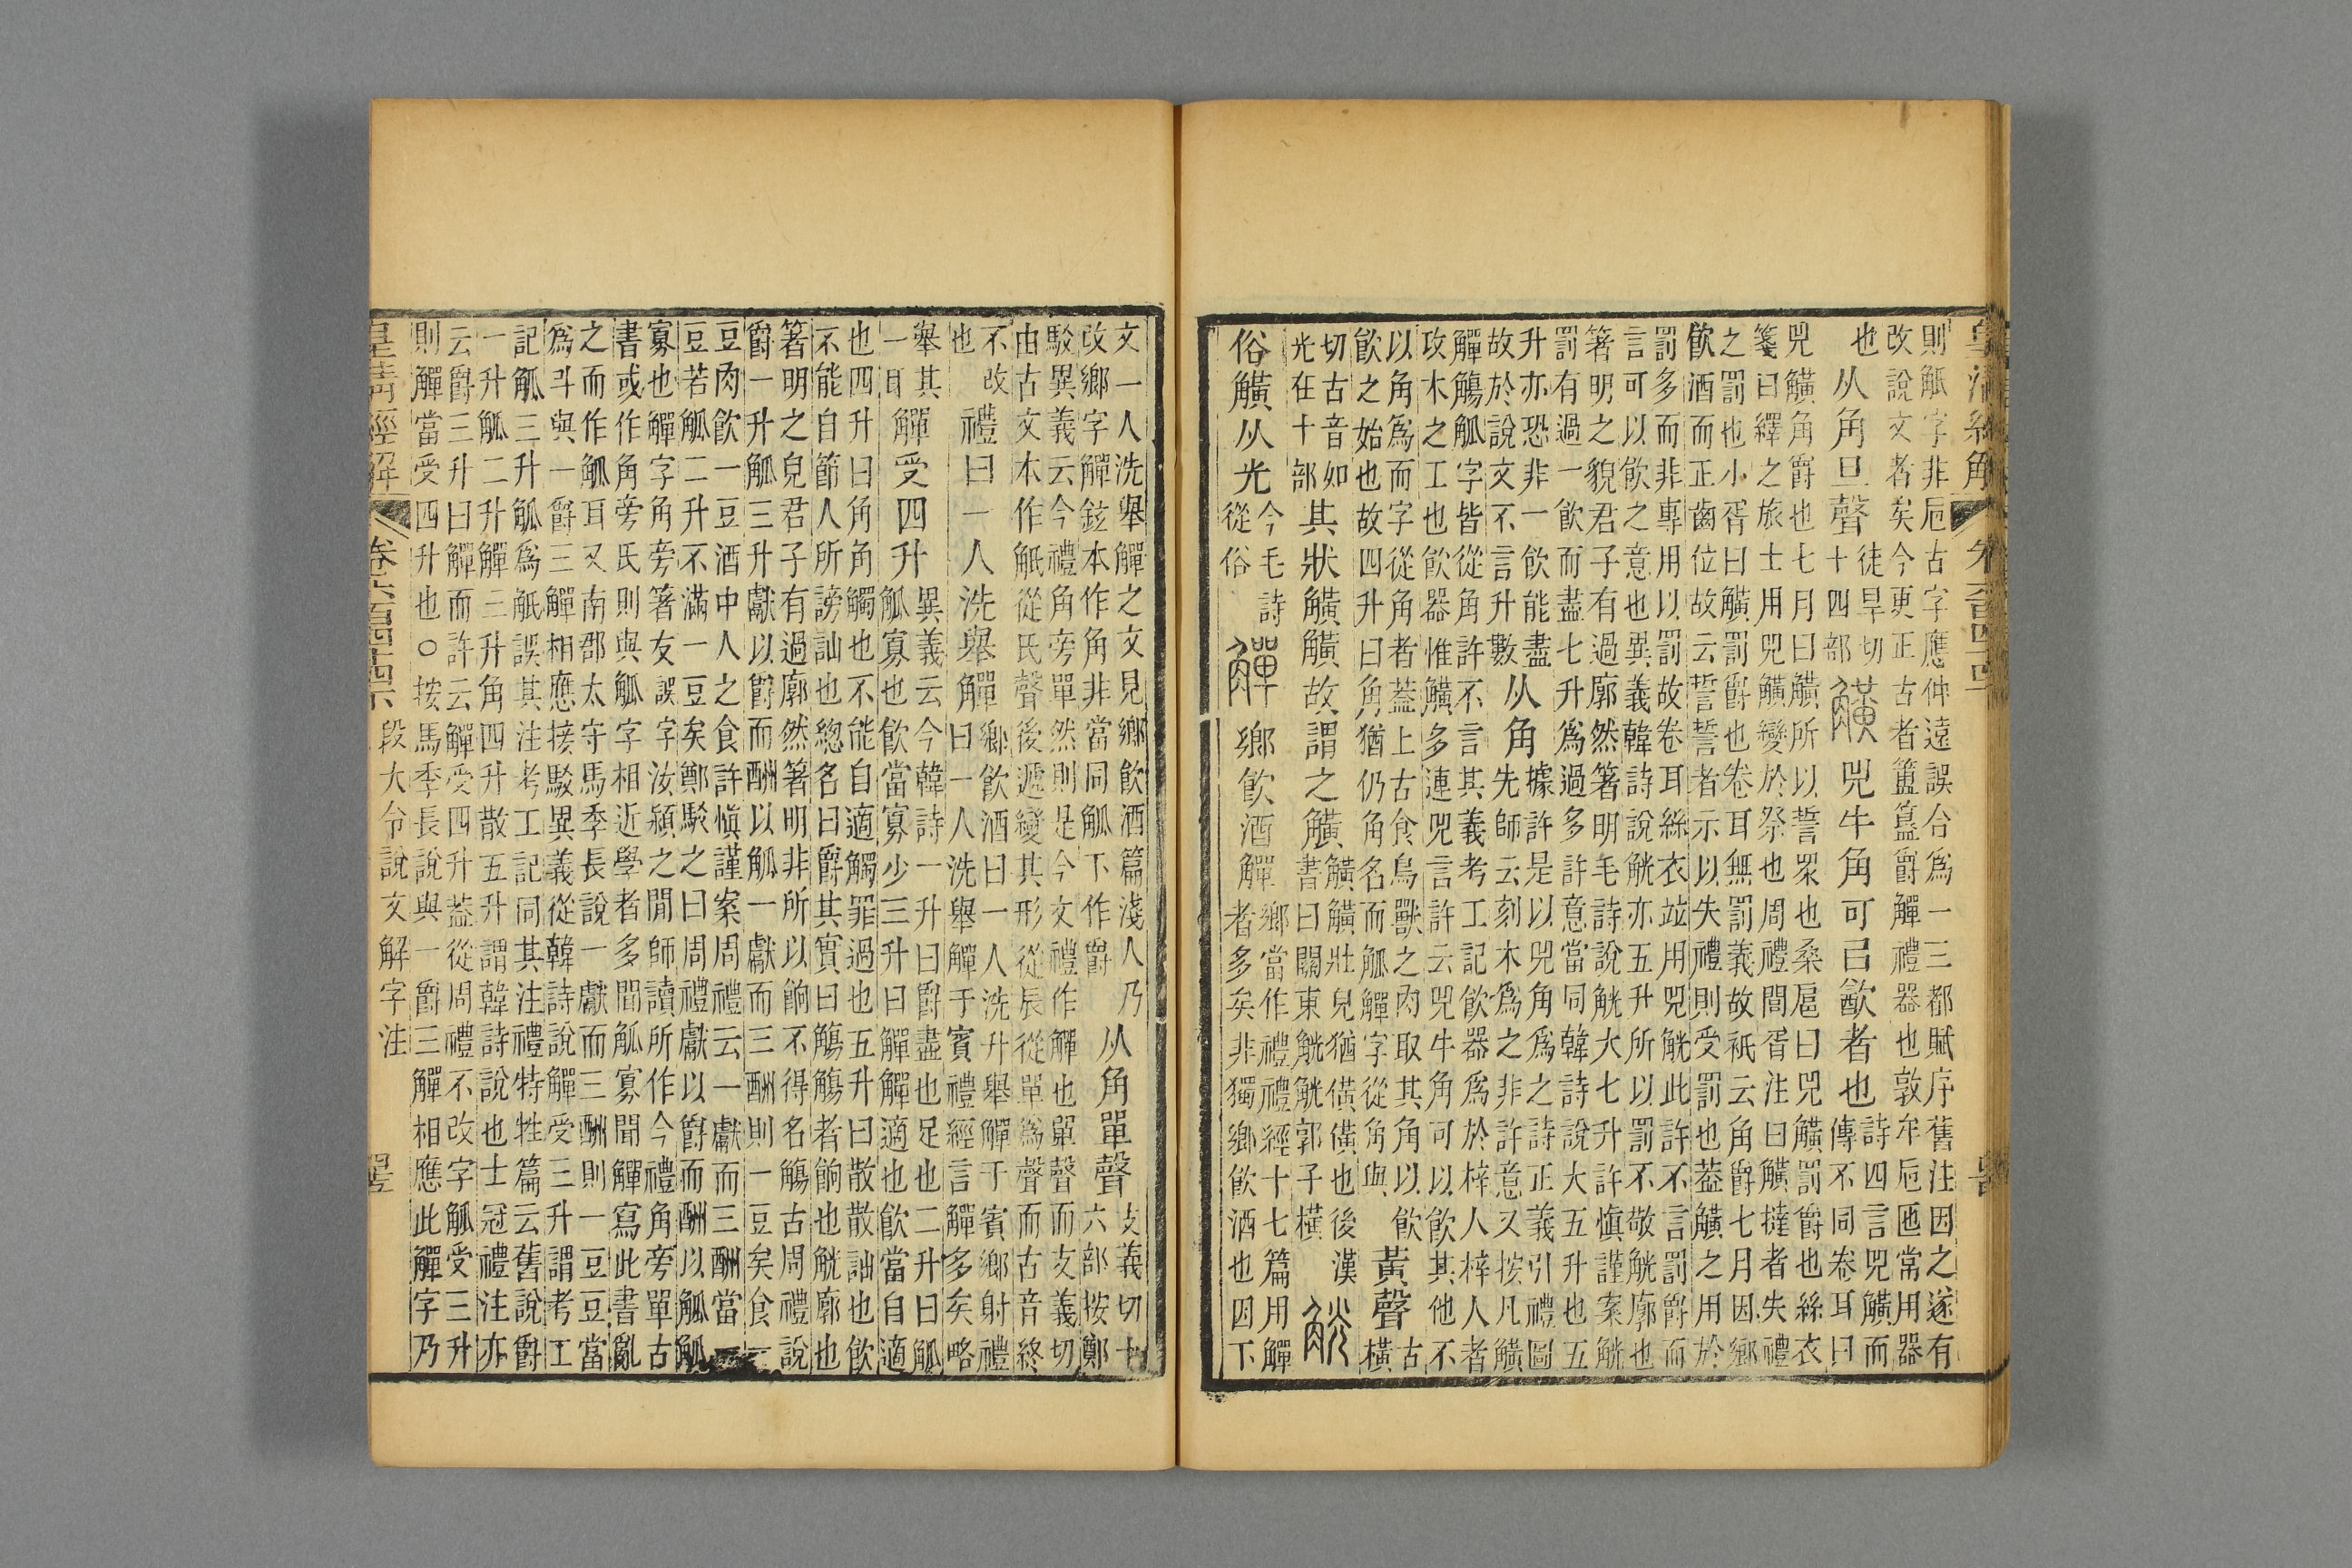 則觚字非卮古字應仲遠誤合爲一三都賦序舊注因之遂有
改說文者矣今更正古者簠簋爵觶禮器也敦牟卮匜常用器
也从角旦聲徒旱切十四部觵兕牛角可㠯歓者也詩四言兕觵而傳不同卷耳曰
兕觵角爵也七月曰觵所以誓衆也桑扈曰兕觵罰爵也絲衣
箋曰繹之旅士用兕觵變於祭也周禮閭胥注曰觵撻者失禮
之罰也小胥曰觵罰爵也卷耳無罰義故祇云角爵七月因鄉
飮酒而正齒位故云誓誓者示以失禮則受罰也葢觵之用於
罰多而非專用以罰故卷耳絲衣竝用兕觥此許不言罰爵而
言可以飮之意也異義韓詩說觥亦五升所以罰不敬觥廓也
箸明之貌君子有過廓然箸明毛詩說觥大七升許愼謹案觥
罰有過一飮而盡七升爲過多許意當同韓詩說大五升也五
升亦恐非一飮能盡據許是以兕角爲之詩正義引禮圖
故於說文不言升數从角先師云刻木爲之非許意又按凡觵
觶觴觚字皆從角許不言其義考工記飮器爲於梓人梓人者
攻木之工也飮器惟觵多連兕言許云兕牛角可以飮其他不
以角爲而字從角者葢上古食鳥獸之肉取其角以飮
飮之始也故四升曰角猶仍角名而觚觶字從角與黃聲古橫
切古音如其狀觵觵故謂之觵觵觵壯皃猶僙僙也後漢
光在十部書曰關東觥觥郭子橫觥
俗觵从光今毛詩從俗觶鄉飮酒觶鄉當作禮禮經十七篇用觶者多矣非獨鄉飮酒也因下
文一人洗舉觶之文見鄉飮酒篇淺人乃从角單聲支義切十
改鄉字觶鉉本作角非當同觚下作爵六部按鄭
駁異義云今禮角旁單然則是今文禮作觶也單聲而支義切
由古文本作觗從氏聲後遞變其形從辰從單爲聲而古音終
不改也禮曰一人洗舉觶鄉飮酒曰一人洗升舉觶于賓鄉射禮曰一人洗舉觶于賓禮經言觶多矣略
舉其一耳觶受四升異義云今韓詩一升曰爵盡也足也二升曰觚觚寡也飮當寡少三升曰觶觶適也飮當自適
也四升曰角角觸也不能自適觸罪過也五升曰散散訕也飮
不能自節人所謗訕也緫名曰爵其實曰觴觴者餉也觥廓也
箸明之皃君子有過廓然箸明非所以餉不得名觴古周禮說
爵一升觚三升獻以爵而酬以觚一獻而三酬則一豆矣食一
豆肉飮一豆酒中人之食許愼謹案周禮云一獻而三酬當一
豆若觚二升不滿一豆矣鄭駁之曰周禮獻以爵而酬以觚觚
寡也觶字角旁箸友誤字汝潁之閒師讀所作今禮角旁單古
書或作角旁氏則與觚字相近學者多聞觚寡聞觶寫此書亂
之而作觚耳又南郡太守馬季長說一獻而三酬則一豆豆當
爲斗與一爵三觶相應按駁異義從韓詩說觶受三升謂考工
記觚三升觚爲觗誤其注考工記同其注禮特牲篇云舊說爵
一升觚二升觶三升角四升散五升謂韓詩說也士冠禮注亦
云爵三升曰觶而許云觶受四升葢從周禮不改字觚受三升
則觶當受四升也○按馬季長說與一爵三觶相應此觶字乃
皇淸經解 卷六百四十四下 段大令說文解字注